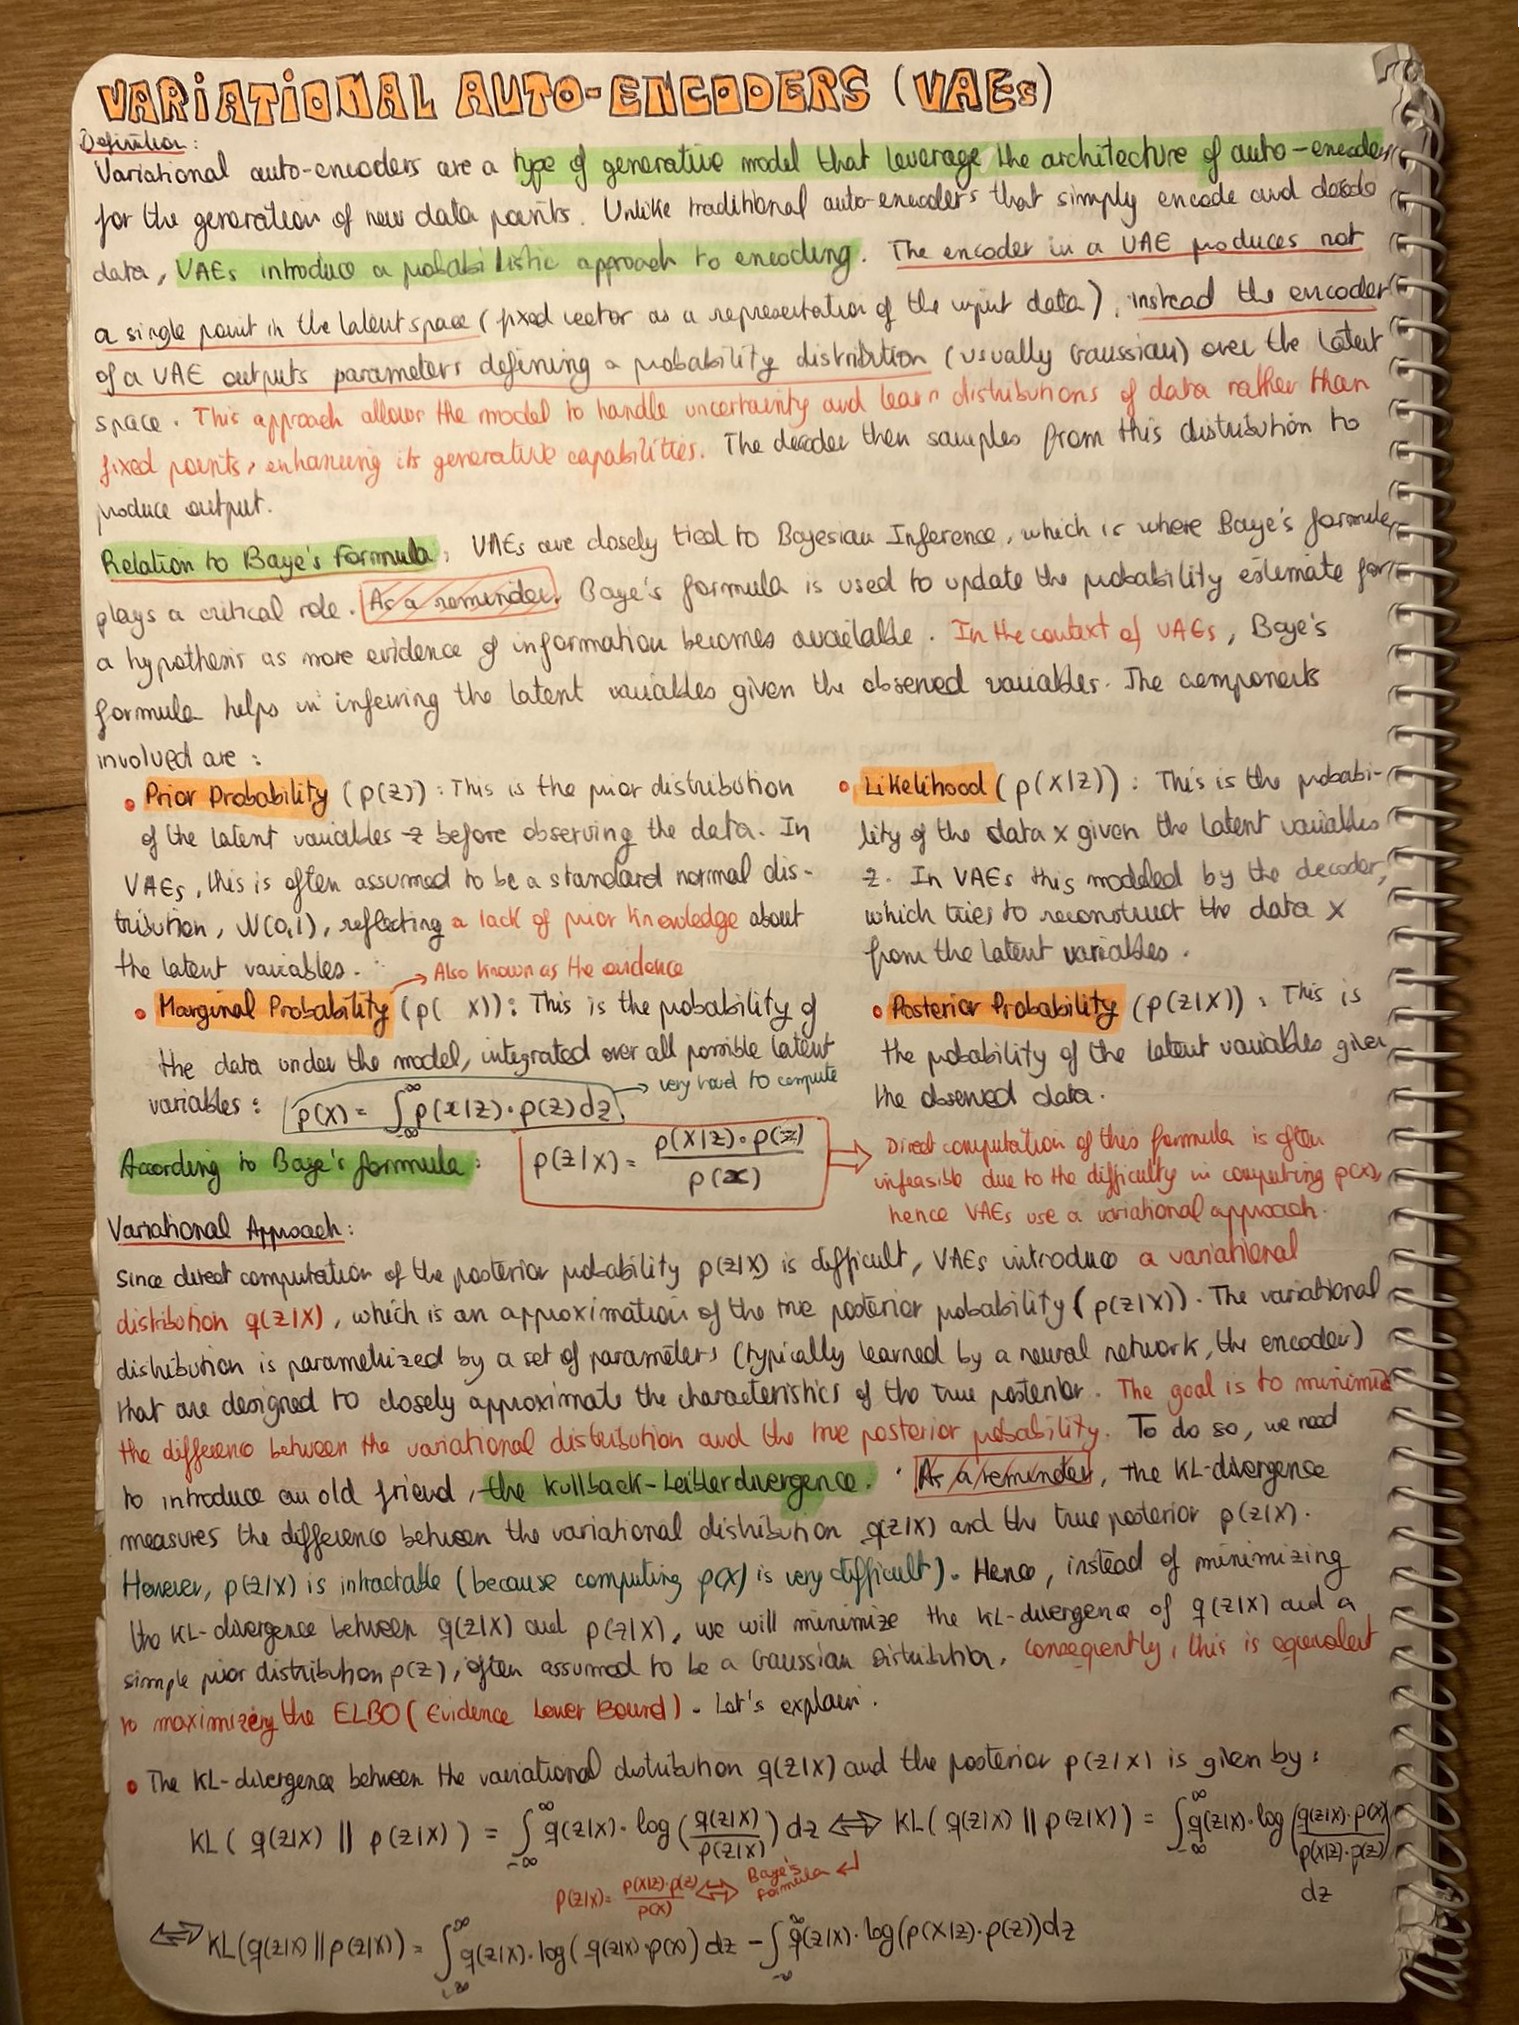 VARIATIONAL AUTO-ENCODERS (VAEs)
Definition:
Variational auto-encoders are a type of generative model that leverage the architecture of auto-encoders
for the generation of new data points. Unlike traditional auto-encoders that simply encode and decode
data, VAEs introduce a probabilistic approach to encoding. The encoder in a VAE produces not
a single point in the latent space (fixed vector as a representation of the input data), instead the encoder
of a VAE outputs parameters defining a probability distribution (usually Gaussian) over the latent
space. This approach allows the model to handle uncertainty and learn distributions of data rather than
fixed points, enhancing its generative capabilities. The decoder then samples from this distribution to
produce output.
Relation to Baye's Formula: VAEs are closely tied to Bayesian Inference, which is where Baye's formula
plays a critical role. As a reminder, Baye's formula is used to update the probability estimate for
a hypothesis as more evidence of information becomes available. In the context of VAEs, Baye's
formula helps in inferring the latent variables given the observed variables. The components
involved are:
• Prior Probability (p(z)): This is the prior distribution
of the latent variables z before observing the data. In
VAEs, this is often assumed to be a standard normal dis-
tribution, N(0,1), reflecting a lack of prior knowledge about
the latent variables.
• Likelihood (p(x|z)): This is the probabi-
lity of the data x given the latent variables
z. In VAEs this modeled by the decoder,
which tries to reconstruct the data x
from the latent variables.
→ Also known as the evidence
• Marginal Probability (p( x)): This is the probability of
the data under the model, integrated over all possible latent
variables: p(x) = ∫_{-∞}^{∞} p(x|z)·p(z)dz → very hard to compute
• Posterior Probability (p(z|x)): This is
the probability of the latent variables given
the observed data.
According to Baye's formula: p(z|x) = p(x|z)·p(z) / p(x)
⇒ Direct computation of this formula is often
infeasible due to the difficulty in computing p(x),
hence VAEs use a variational approach.
Variational Approach:
Since direct computation of the posterior probability p(z|x) is difficult, VAEs introduce a variational
distribution q(z|x), which is an approximation of the true posterior probability (p(z|x)). The variational
distribution is parametrized by a set of parameters (typically learned by a neural network, the encoder)
that are designed to closely approximate the characteristics of the true posterior. The goal is to minimize
the difference between the variational distribution and the true posterior probability. To do so, we need
to introduce an old friend, the Kullback-Leibler divergence. As a reminder, the KL-divergence
measures the difference between the variational distribution q(z|x) and the true posterior p(z|x).
However, p(z|x) is intractable (because computing p(x) is very difficult). Hence, instead of minimizing
the KL-divergence between q(z|x) and p(z|x), we will minimize the KL-divergence of q(z|x) and a
simple prior distribution p(z), often assumed to be a Gaussian Distribution. Consequently, this is equivalent
to maximizing the ELBO (Evidence Lower Bound). Let's explain.
• The KL-divergence between the variational distribution q(z|x) and the posterior p(z|x) is given by:
KL( q(z|x) || p(z|x) ) = ∫_{-∞}^{∞} q(z|x)·log( q(z|x) / p(z|x) ) dz ⟺ KL( q(z|x) || p(z|x) ) = ∫_{-∞}^{∞} q(z|x)·log( q(z|x)·p(x) / p(x|z)·p(z) )
dz
p(z|x) = p(x|z)·p(z) / p(x) ⟺ Baye's formula ↵
⟺ KL(q(z|x) || p(z|x)) = ∫_{-∞}^{∞} q(z|x)·log( q(z|x)·p(x) ) dz − ∫_{-∞}^{∞} q(z|x)·log(p(x|z)·p(z))dz